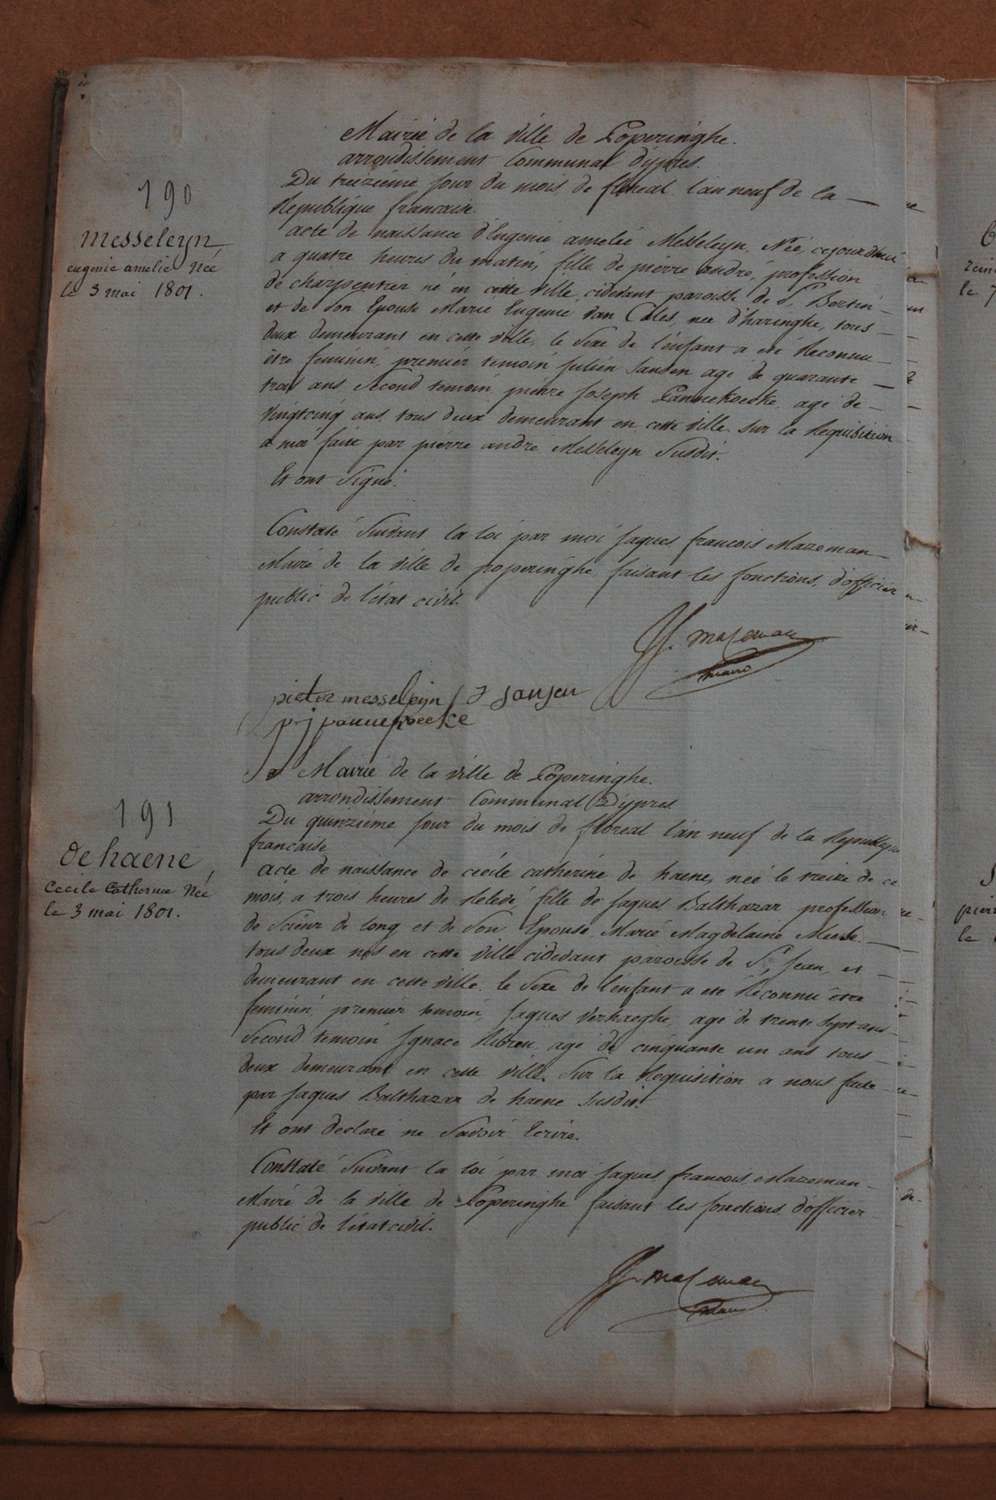 190
Messeleyn
eugenie amelie Neé
le 3 mai 1801.
Mairié de la ville de Poperinghe.
arrondissement Communal d'ÿpres.
Du treiziéme jour du mois de floreal l'an neuf de la
Republique francaise.
acte de naissance d'Eugenie amelié Messeleyn, Née cejourdhui
a quatre heures du matin, fille de pierre andré, profession
de charpentier né en cette ville, cidevant paroisse de St. Bertin
et de Son Epouse Marie Eugenie Van Cales, neé d'haringhe, tous
deux demeurant en cette ville, le Sexe de l'enfant a eté Reconnu
être feminin, premier temoin Julien Sansen agé de quarante
trois ans, Second temoin pierre Joseph Pannekoeke agé de
vingtcinq ans, tous deux demeurant en cette ville. Sur la Requisition
a moi faite par pierre andré Messeleyn Susdit.
Et ont Signé.
Constaté Suivant la loi par moi Jaques francois Mazeman
Mairé de la ville de poperinghe, faisant les fonctions d'officier
public de l'état civil.
JF. Mazeman
Maire
pieter messeleyn J Sansen
pj pannekoeke
191
de haene,
Cecile Catherine Neé
le 3 mai 1801.
Mairié de la ville de Poperinghe.
arrondissement Communal D'ÿpres
Du quinziéme jour du mois de floreal l'an neuf de la Republique
francaise
acte de naissance de cécile catherine de haene, neé le treize de ce
mois, a trois heures de Relevé, fille de Jaques Balthazar, profession
de Scieur de long et de Son Epouse, Marié Magdelaine
tous deux nés en cette ville cidevant paroisse de St. Jean, et
demeurant en cette ville. le Sexe de l'enfant a eté Reconnu être
feminin, premier temoin Jaques Verhaeghe, agé de trente Sept ans
Second temoin Ignace agé de cinquante un ans tous
deux demeurant en cette ville. Sur la Requisition a nous faite
par Jaques Balthazar de haene Susdit.
Et ont declaré ne Savoir Ecrire.
Constaté Suivant la loi par moi Jaques francois Mazeman
Mairé de la ville de Poperinghe faisant les fonctions d'officier
public de l'état civil.
JF. Mazeman
Maire